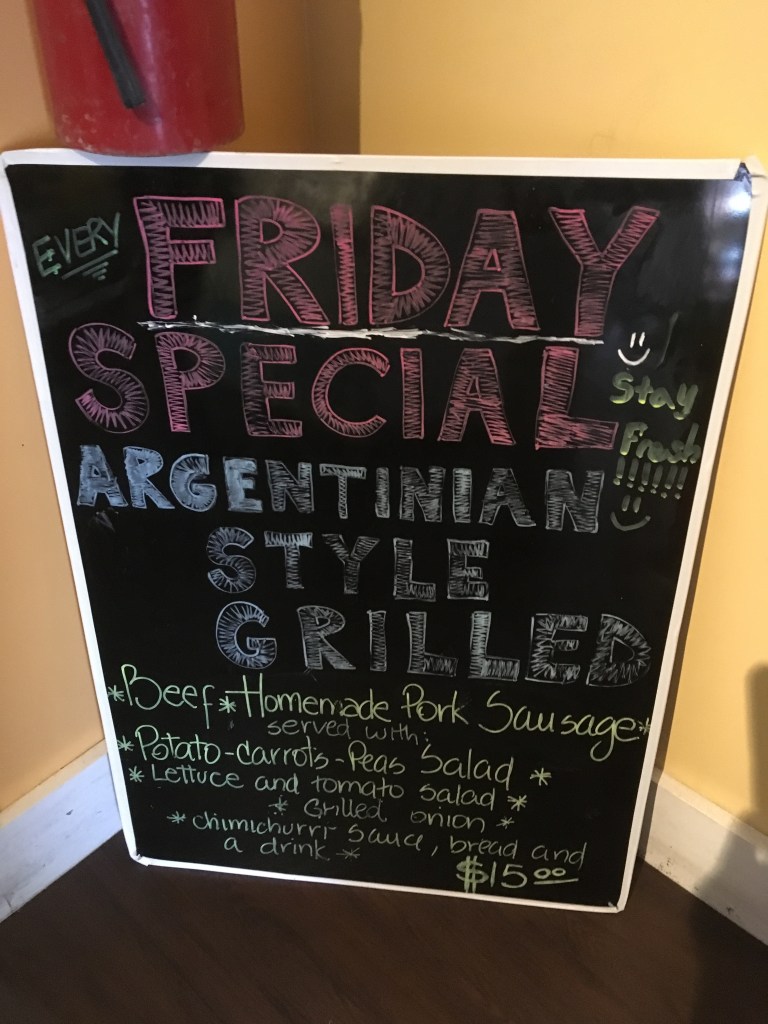 EVERY
FRIDAY
SPECIAL
Stay
Fresh
!!!!!!
ARGENTINIAN
STYLE
GRILLED
*Beef*Homemade Pork Sausage*
served with:
*Potato-carrots-Peas Salad *
* Lettuce and tomato salad *
* Grilled onion *
* chimichurri sauce, bread and
a drink *
$15.00